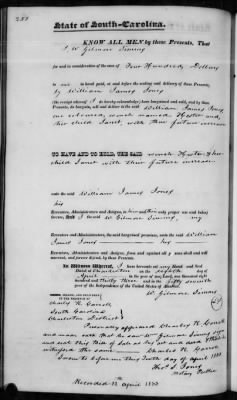 State of South-Carolina.
KNOW ALL MEN by these Presents, That
I W Gilmore Simms
for and in consideration of the sum of Four Hundred Dollars
to me in hand paid, at and before the sealing and delivery of these Presents,
by William James Jones
(the receipt whereof I do hereby acknowledge) have bargained and sold, and by these
Presents, do bargain, sell and deliver to the said William James Jones
one wench named Hester and
her child Janet, with their future increase
TO HAVE AND TO HOLD, THE SAID wench Hester & her
child Janet with their future increase
unto the said William James Jones
his
Executors, Administrators and Assigns, to him and their only proper use and behoof
forever. And I the said W Gilmore Simms, my
Executors and Administrators, the said bargained premises, unto the said William
James Jones his
Executors, Administrators and Assigns, from and against all persons shall and will
warrant, and forever defend, by these Presents.
In Witness Whereof, I have hereunto set my Hand and Seal
Dated at Charleston on the eighth day of
April in the year of our Lord, one thousand eight
hundred and thirty three and in the fifty seventh
year of the Independence of the United States of America.
W. Gilmore Simms
SIGNED, SEALED, AND DELIVERED
IN THE PRESENCE OF
Charles R. Carroll
South Carolina
Charleston District
Personally appeared Charles R. Carroll
and made oath that he saw W Gilmore Simms sign
and seal this Bill of Sale as his act and deed &
witnessed the same Charles R. Carroll
Sworn to before me this Tenth day of April 1833
Thos S. Jones
Notary Public
Recorded 12 April 1833